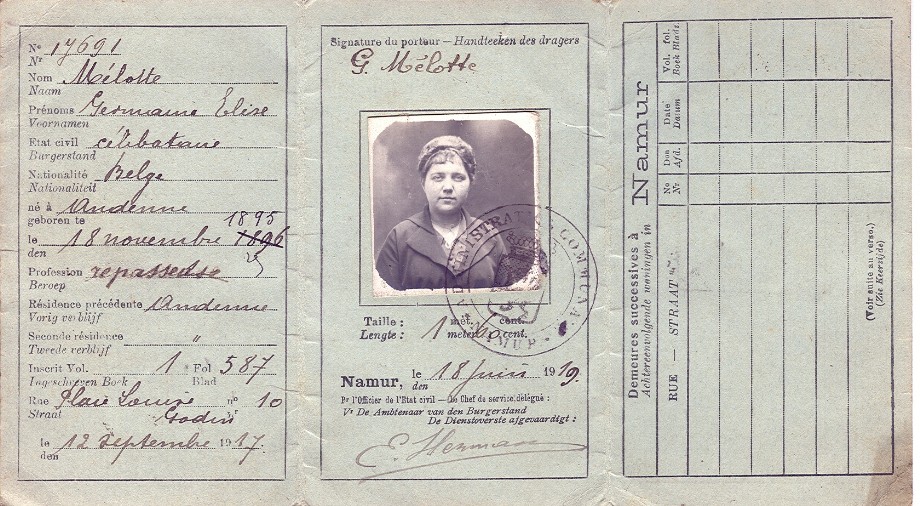 No 17691
Nr
Nom Mélotte
Naam
Prénoms Germaine Elise
Voornamen
Etat civil célibataire
Burgerstand
Nationalité Belge
Nationaliteit
né à Andenne
geboren te
1895
le 18 novembre 1896
den
Profession repasseuse
Beroep
Résidence précédente Andenne
Vorig verblijf
Seconde résidence "
Tweede verblijf
Inscrit Vol. 1 Fol 587
Ingeschreven Boek Blad
Rue Place Louise no 10
Straat Godin nr
le 12 septembre 1917.
den
Signature du porteur — Handteeken des dragers
G. Mélotte
ADMINISTRATION COMMUNALE NAMUR
Taille : 1 mèt. 60 cent.
Lengte : meter cent.
Namur, le 18 juin 1919.
den
Pr l'Officier de l'Etat civil — Le Chef de service délégué :
Vr De Ambtenaar van den Burgerstand
De Dienstoverste afgevaardigt :
E. Hermans
Demeures successives à Namur
Achtereenvolgende woningen in
RUE — STRAAT
No
Nr
Don
Afd.
Date
Datum
Vol. fol.
Boek Blads.
(Voir suite au verso.)
(Zie Keerzijde)